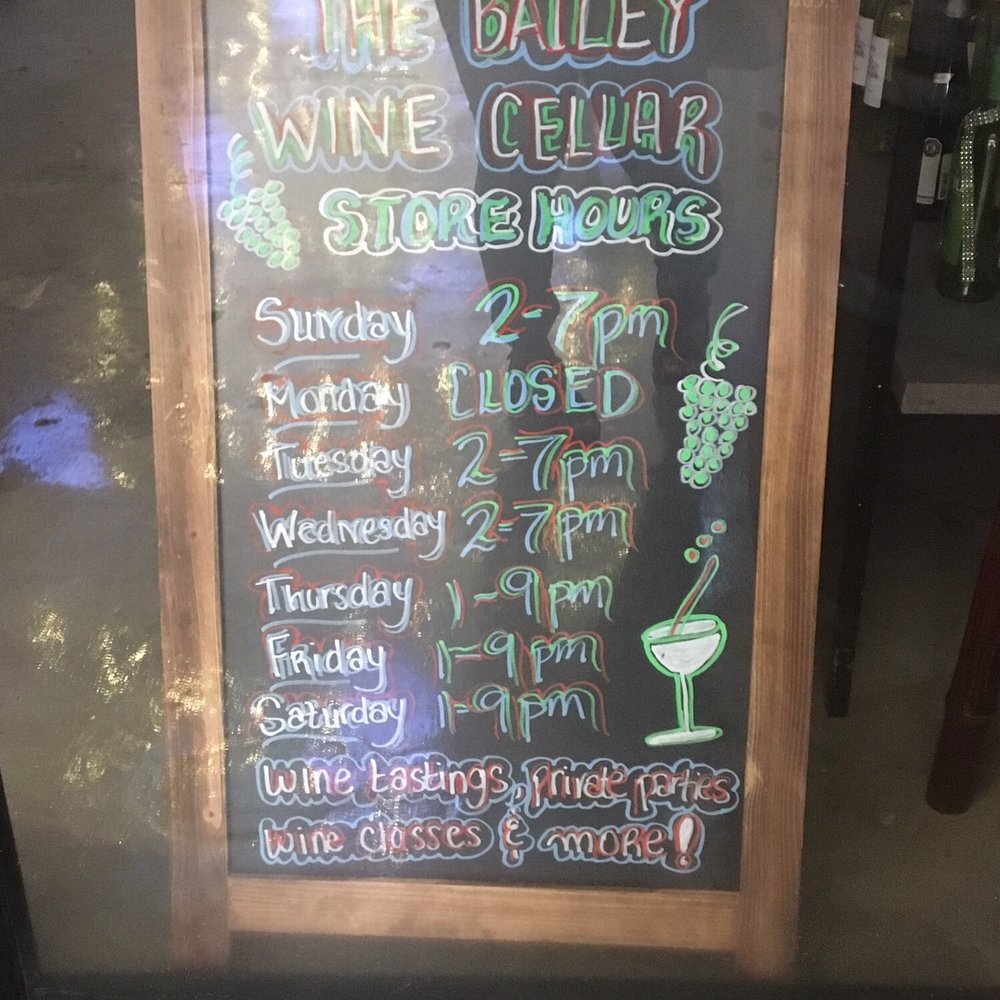 THE BAILEY
WINE CELLAR
STORE HOURS
Sunday 2-7pm
Monday CLOSED
Tuesday 2-7pm
Wednesday 2-7pm
Thursday 1-9pm
Friday 1-9pm
Saturday 1-9pm
wine tastings, private parties
wine classes & more!